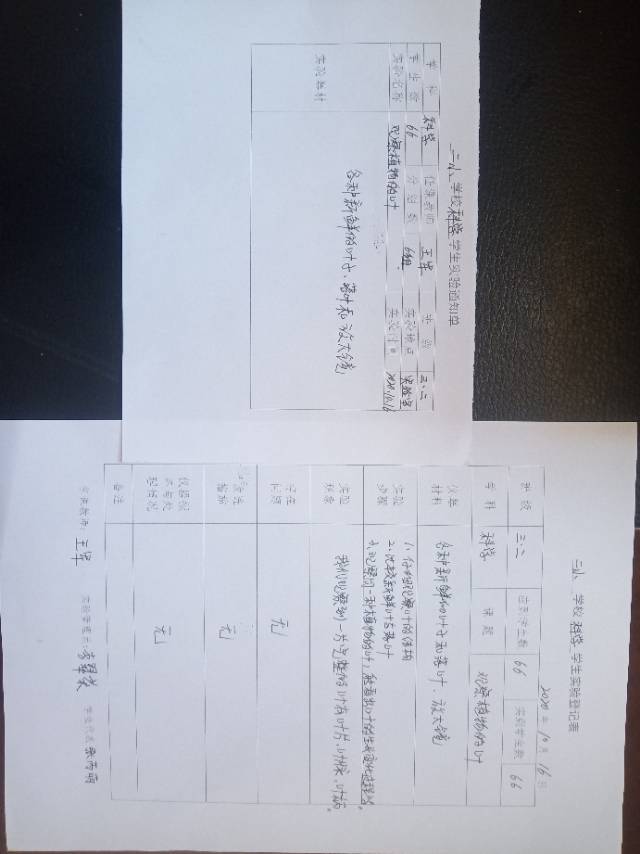 三小 学校 科学 学生实验通知单
学科 科学 任课教师 王军 班级 三.二
学生数 66 分组数 6组 实验地点 实验室
实验名称 观察植物的叶 实验时间
实验器材 各种新鲜的叶子、落叶和放大镜
三小 学校 科学 学生实验登记表
2020年10月16日
班级 三.二 应到学生数 66 实到学生数 66
学科 科学 课题 观察植物的叶
仪器材料 各种新鲜的叶子和落叶、放大镜
实验步骤 1、仔细观察叶的结构
2、比较新鲜叶与落叶
3、观察同一种植物的叶,能看出叶的生长变化过程吗
实验现象 我们观察到一片完整的叶有叶片、叶柄、叶脉。
存在问题 无
无
仪器损坏与处理情况 无
备注
任课教师: 王军 实验管理员: 学生代表